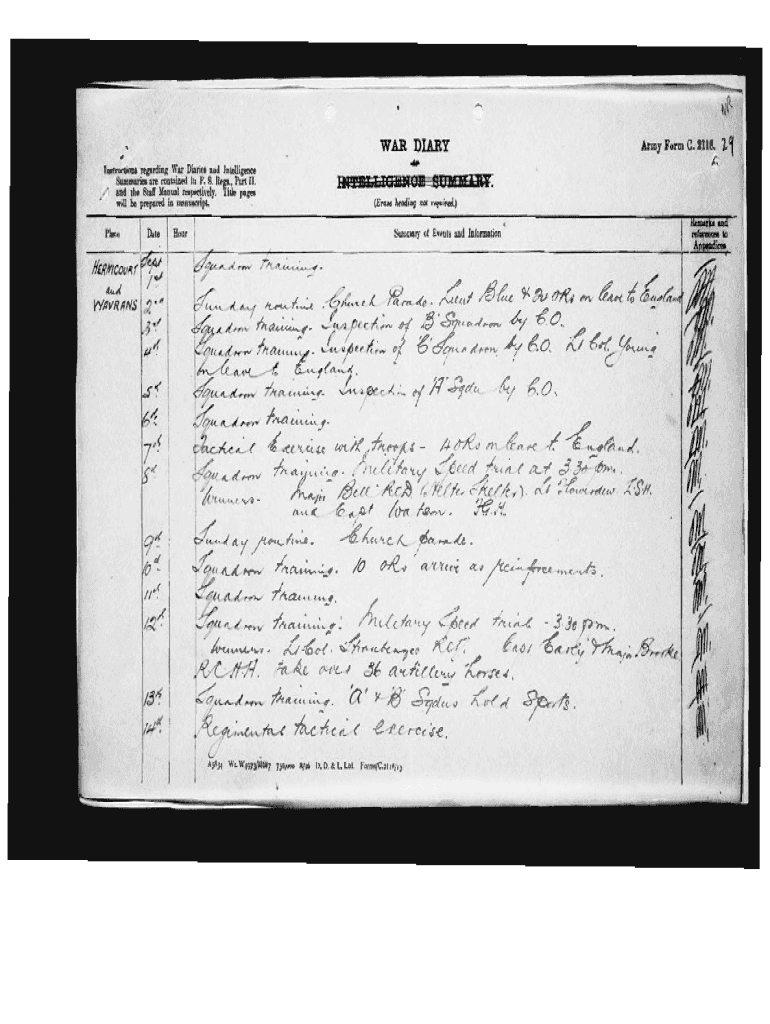 WAR DIARY
Army Form C. 2118. 29
or
INTELLIGENCE SUMMARY.
(Erase heading not required.)
Instructions regarding War Diaries and Intelligence
Summaries are contained in F. S. Regs., Part II.
and the Staff Manual respectively. Title pages
will be prepared in manuscript.
Place Date Hour Summary of Events and Information Remarks and references to Appendices
HERNICOURT and WAVRANS
Sept 1st Squadron training.
2nd Sunday routine. Church Parade. Lieut Blue & 20 ORs on leave to England
3rd Squadron training. Inspection of 'B' Squadron by C.O.
4th Squadron training. Inspection of 'C' Squadron by C.O. Lt Col. Young
on leave to England.
5th Squadron training. Inspection of 'A' Sqdn by C.O.
6th Squadron training.
7th Tactical Exercise with troops - 4 ORs on leave to England.
8th Squadron training. Military Speed trial at 3.30 pm.
Winners. Major Bell RCD (Helter Skelter). Lt Flowerdew LSH.
and Capt Watson. F.G.H.
9th Sunday routine. Church parade.
10th Squadron training. 10 ORs arrive as reinforcements.
11th Squadron training.
12th Squadron training. Military Speed trial - 3.30 pm.
Winners. Lt Col. Straubenzee RCD. & Major Brooke
R.C.H.A. take over 36 artillery horses.
13th Squadron training. 'A' & 'B' Sqdns hold Sports.
14th Regimental tactical exercise.
D. D. & L. Ltd.